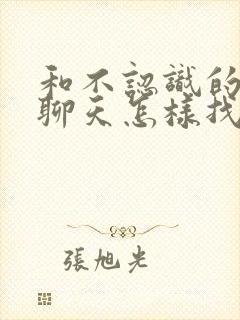 和不認識的
聊天怎樣找
張旭光